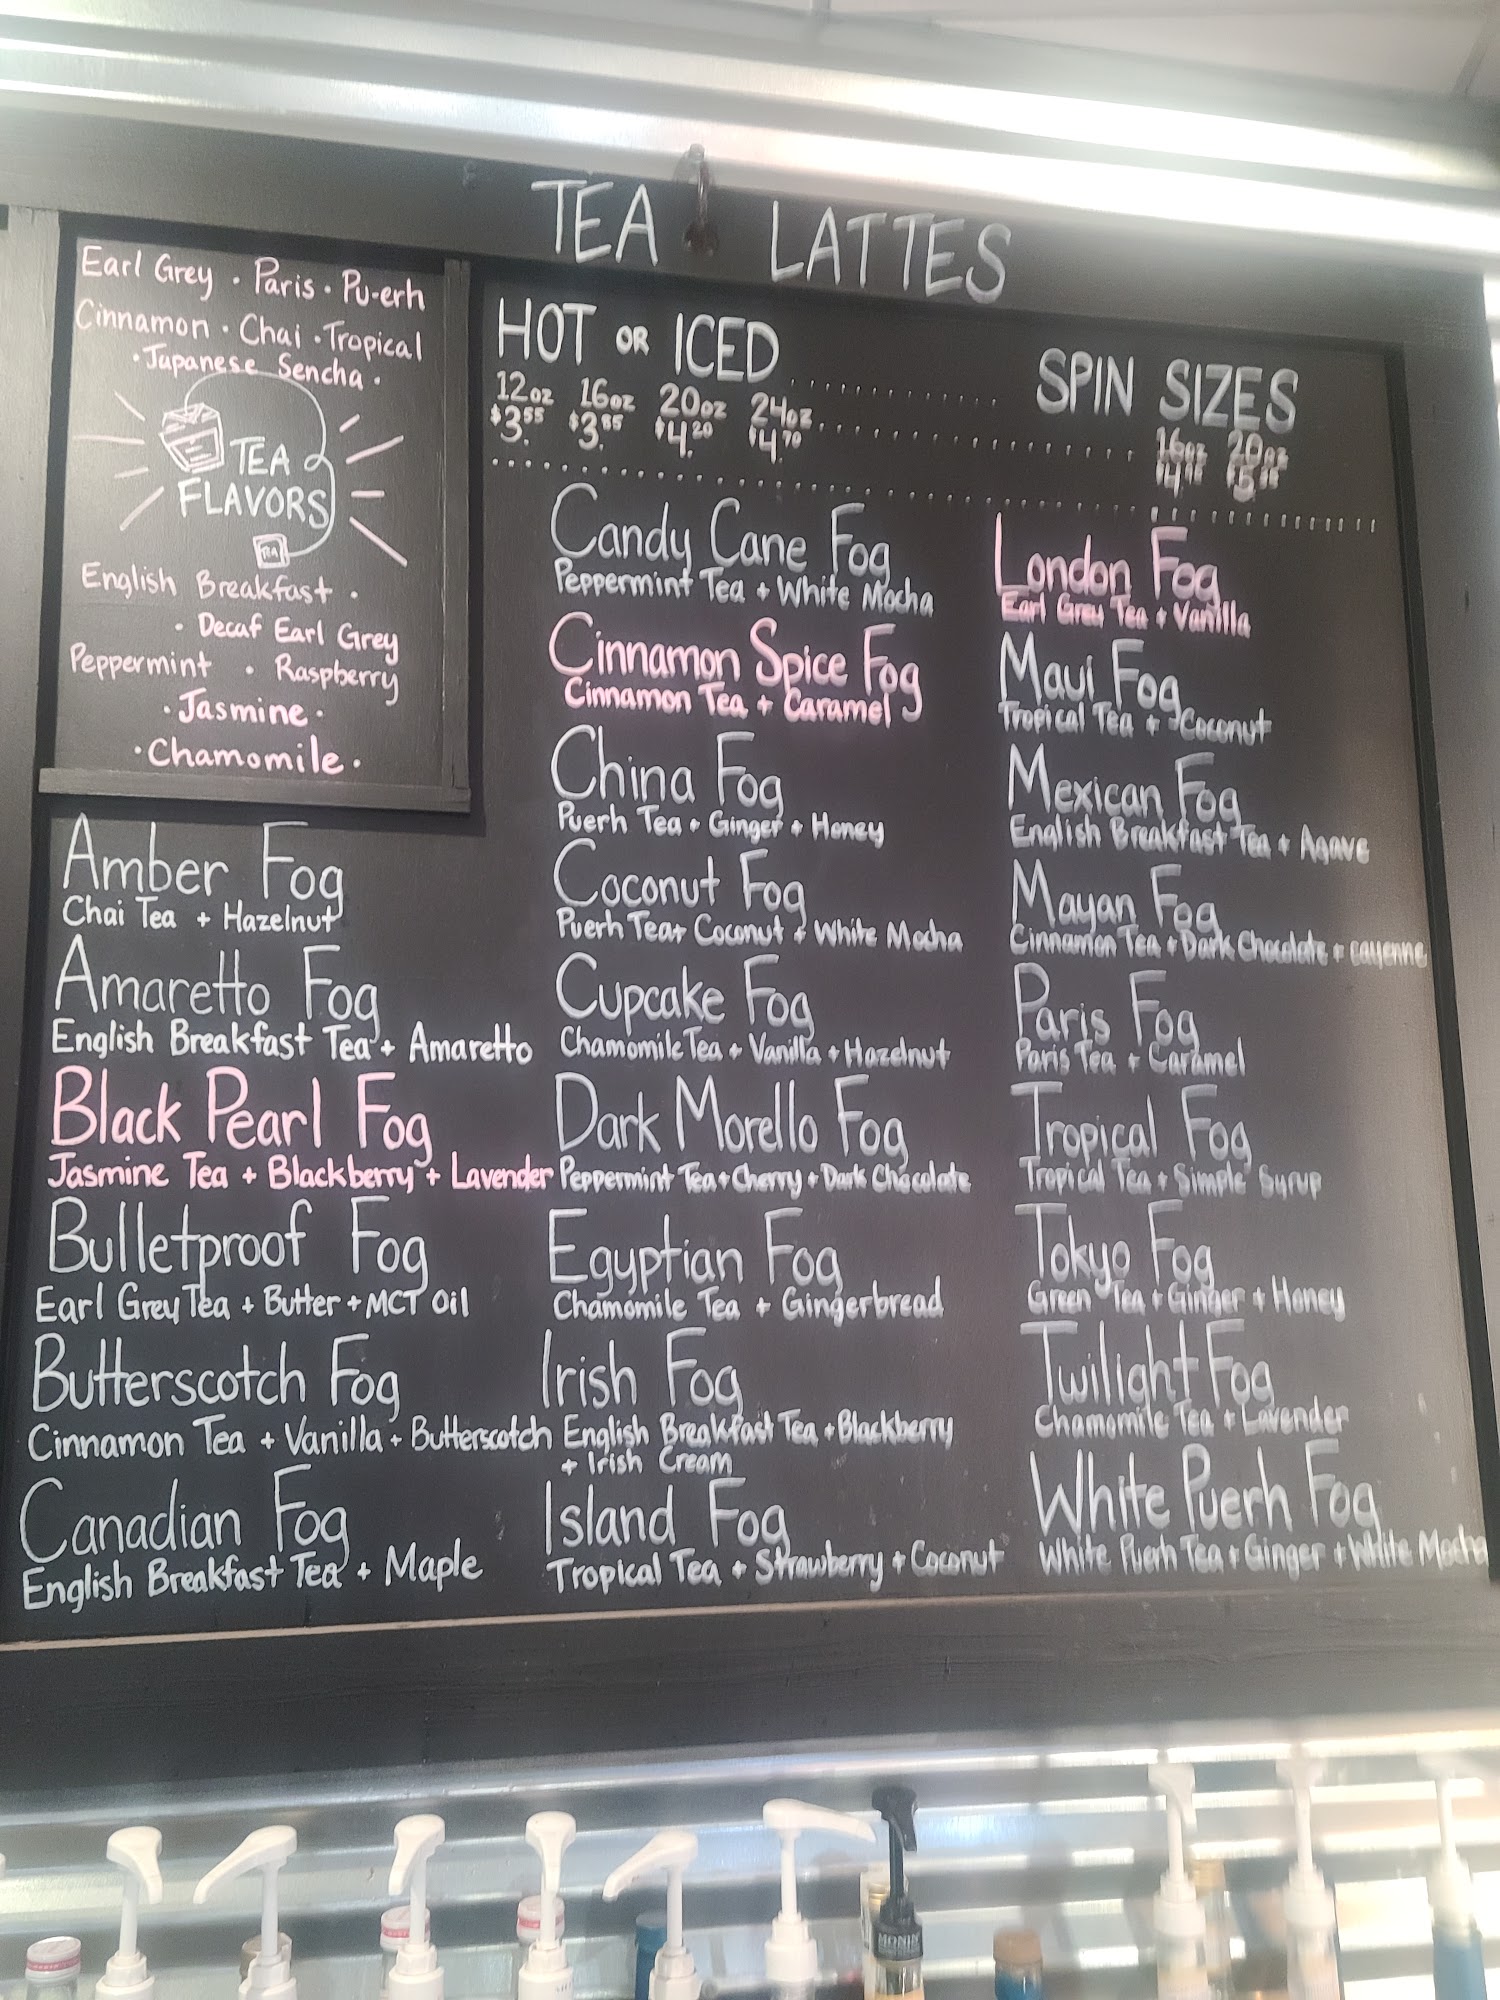 TEA LATTES
Earl Grey · Paris · Pu-erh
Cinnamon · Chai · Tropical
· Japanese Sencha ·
TEA
FLAVORS
TEA
English Breakfast ·
· Decaf Earl Grey
Peppermint · Raspberry
· Jasmine ·
· Chamomile ·
HOT OR ICED
12oz 16oz 20oz 24oz
$3.55 $3.85 $4.20 $4.70
SPIN SIZES
16oz 20oz
Amber Fog
Chai Tea + Hazelnut
Amaretto Fog
English Breakfast Tea + Amaretto
Black Pearl Fog
Jasmine Tea + Blackberry + Lavender
Bulletproof Fog
Earl Grey Tea + Butter + MCT Oil
Butterscotch Fog
Cinnamon Tea + Vanilla + Butterscotch
Canadian Fog
English Breakfast Tea + Maple
Candy Cane Fog
Peppermint Tea + White Mocha
Cinnamon Spice Fog
Cinnamon Tea + Caramel
China Fog
Puerh Tea + Ginger + Honey
Coconut Fog
Puerh Tea + Coconut + White Mocha
Cupcake Fog
Chamomile Tea + Vanilla + Hazelnut
Dark Morello Fog
Peppermint Tea + Cherry + Dark Chocolate
Egyptian Fog
Chamomile Tea + Gingerbread
Irish Fog
English Breakfast Tea + Blackberry
+ Irish Cream
Island Fog
Tropical Tea + Strawberry + Coconut
London Fog
Earl Grey Tea + Vanilla
Maui Fog
Tropical Tea + Coconut
Mexican Fog
English Breakfast Tea + Agave
Mayan Fog
Cinnamon Tea + Dark Chocolate + cayenne
Paris Fog
Paris Tea + Caramel
Tropical Fog
Tropical Tea + Simple Syrup
Tokyo Fog
Green Tea + Ginger + Honey
Twilight Fog
Chamomile Tea + Lavender
White Puerh Fog
White Puerh Tea + Ginger + White Mocha
MONIN